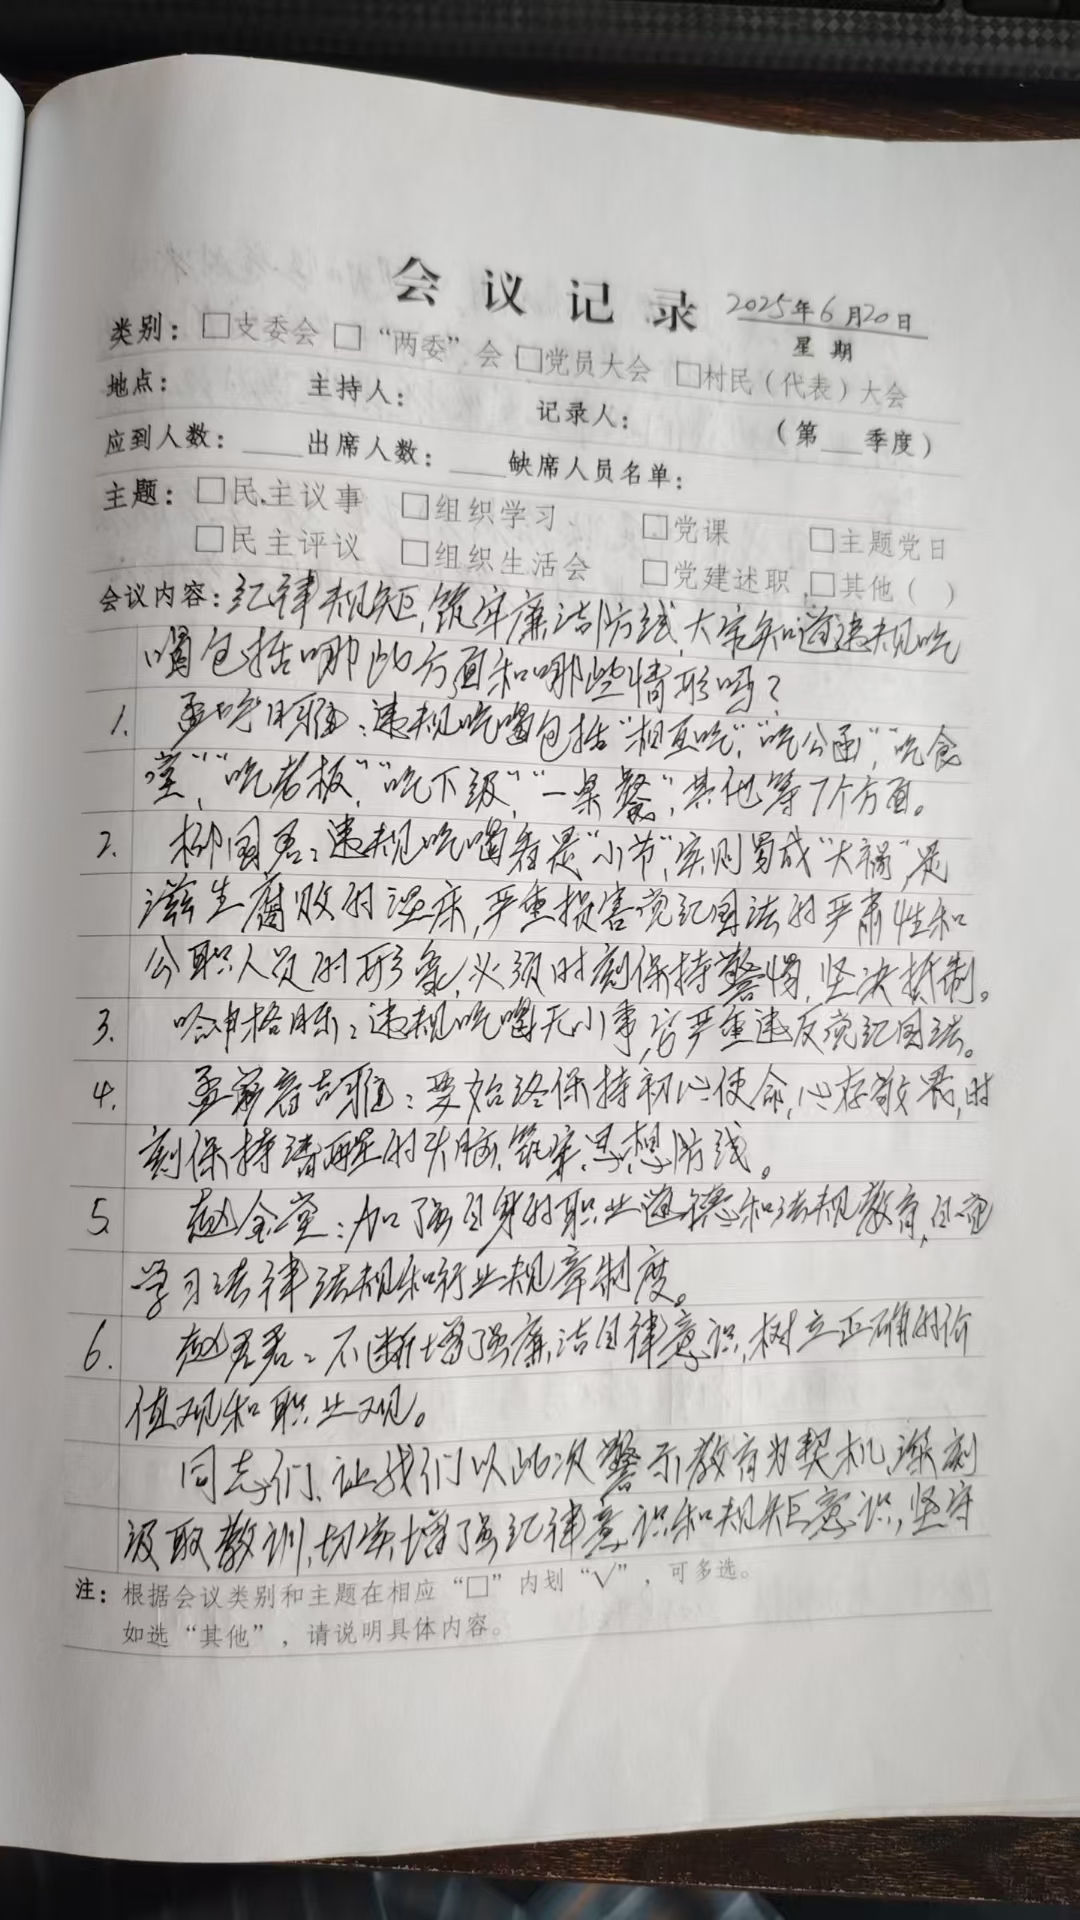 会议记录 2025年6月20日
星期
类别：□支委会 □“两委”会 □党员大会 □村民（代表）大会
地点： 主持人： 记录人： （第__季度）
应到人数：____出席人数：____缺席人员名单：
主题：□民主议事 □组织学习 □党课 □主题党日
□民主评议 □组织生活会 □党建述职 □其他（ ）
会议内容：纪律规矩，筑牢廉洁防线，大家知道违规吃
喝包括哪些方面和哪些情形吗？
1. 雅：违规吃喝包括“相互吃”，“吃公函”，“吃食
堂”，“吃老板”，“吃下级”，“一桌餐”，其他等7个方面。
2. 柳国君：违规吃喝看是“小节”，实则易成“大祸”，是
滋生腐败的温床，严重损害党纪国法的严肃性和
公职人员的形象，必须时刻保持警惕，坚决抵制。
3. 哈申格日乐：违规吃喝无小事，严重违反党纪国法。
4. 孟吉雅：要始终保持初心使命，心存敬畏，时
刻保持清醒的头脑，筑牢思想防线。
5. 赵金堂：加强自身的职业道德和法规教育，自觉
学习法律法规和行业规章制度。
6. 赵君君：不断增强廉洁自律意识，树立正确的价
值观和职业观。
同志们，让我们以此次警示教育为契机，深刻
汲取教训，切实增强纪律意识和规矩意识，坚守
注：根据会议类别和主题在相应“□”内划“√”，可多选。
如选“其他”，请说明具体内容。